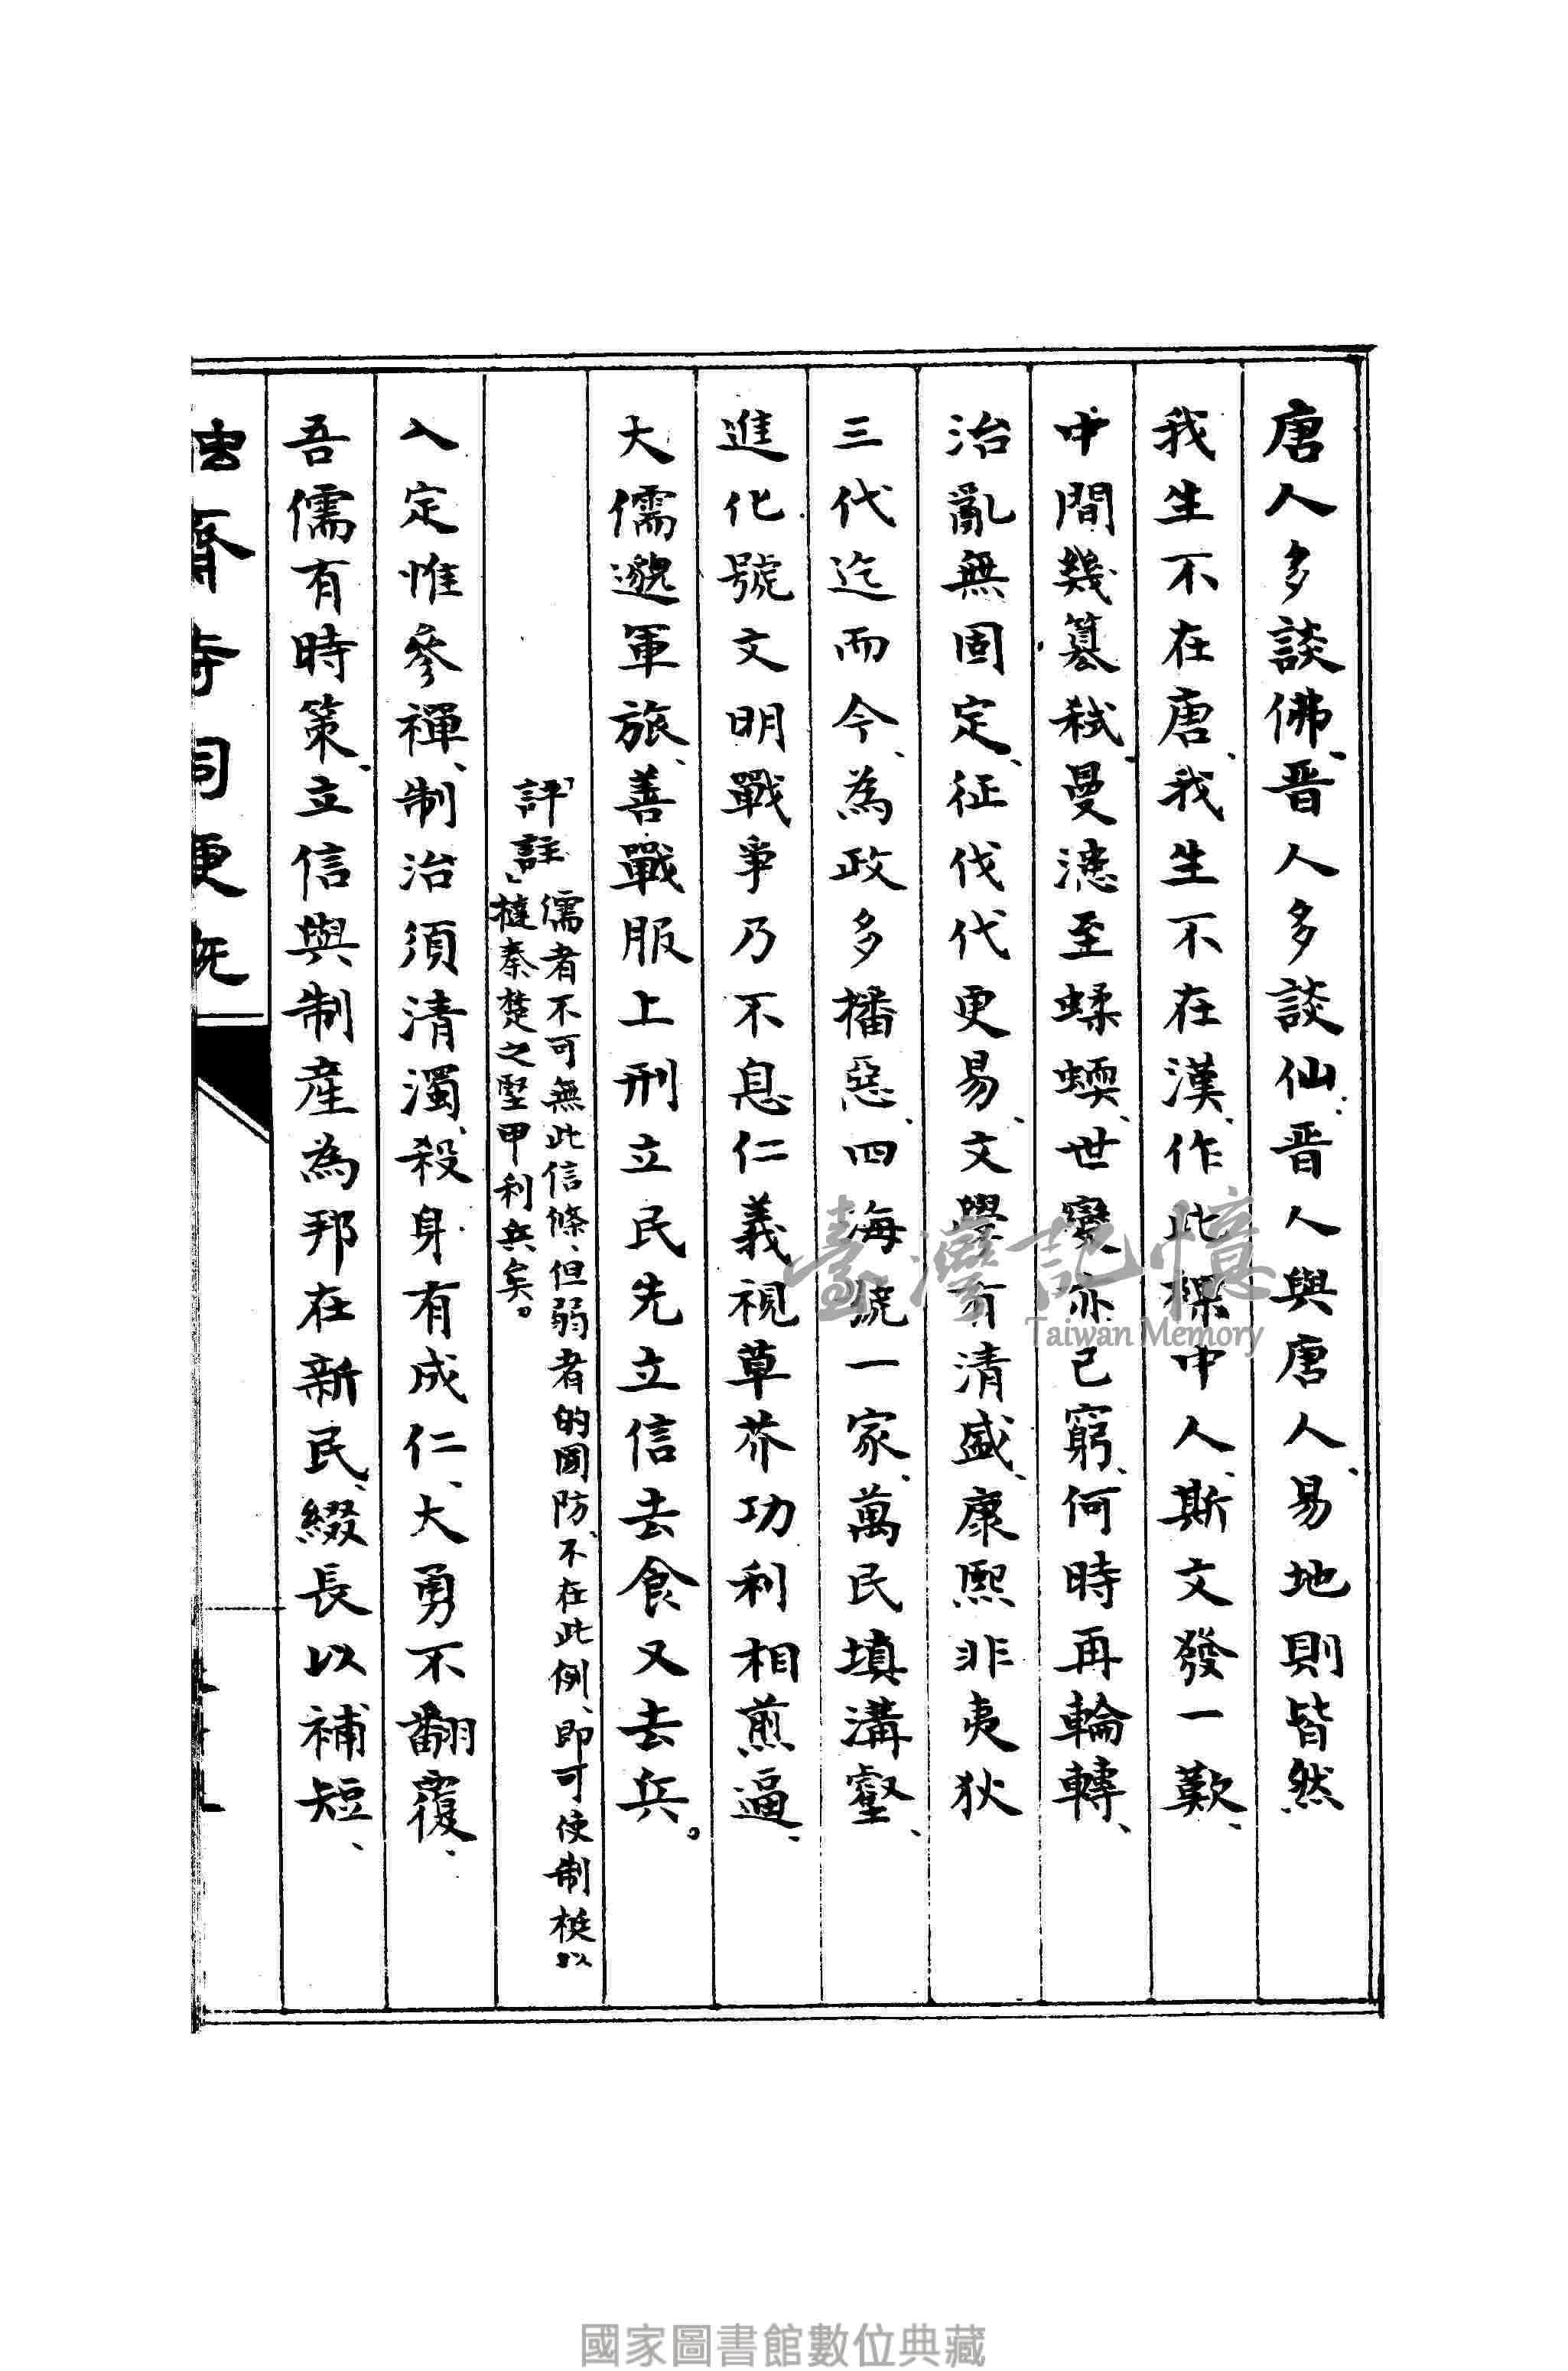 唐人多談佛、晋人多談仙、晋人與唐人、易地則皆然
我生不在唐、我生不在漢、作此樑中人、斯文發一歎、
中間幾簒弒、曼漶至蝚蝡、世變亦已窮、何時再輪轉、
治亂無固定、征伐代更易、文學有清盛、康熙非夷狄
三代迄而今、為政多播惡、四海號一家、萬民填溝壑、
進化號文明戰爭乃不息仁義視草芥功利相煎逼、
大儒邈軍旅、善戰服上刑立民先立信去食又去兵。
評註、儒者不可無此信條、但弱者的國防、不在此例、即可使制梃以
撻秦楚之堅甲利兵矣。
入定惟參禪、制治須清濁、殺身有成仁、大勇不翻覆、
吾儒有時策、立信與制產為邦在新民、綴長以補短、
臺灣記憶
Taiwan Memory
國家圖書館數位典藏